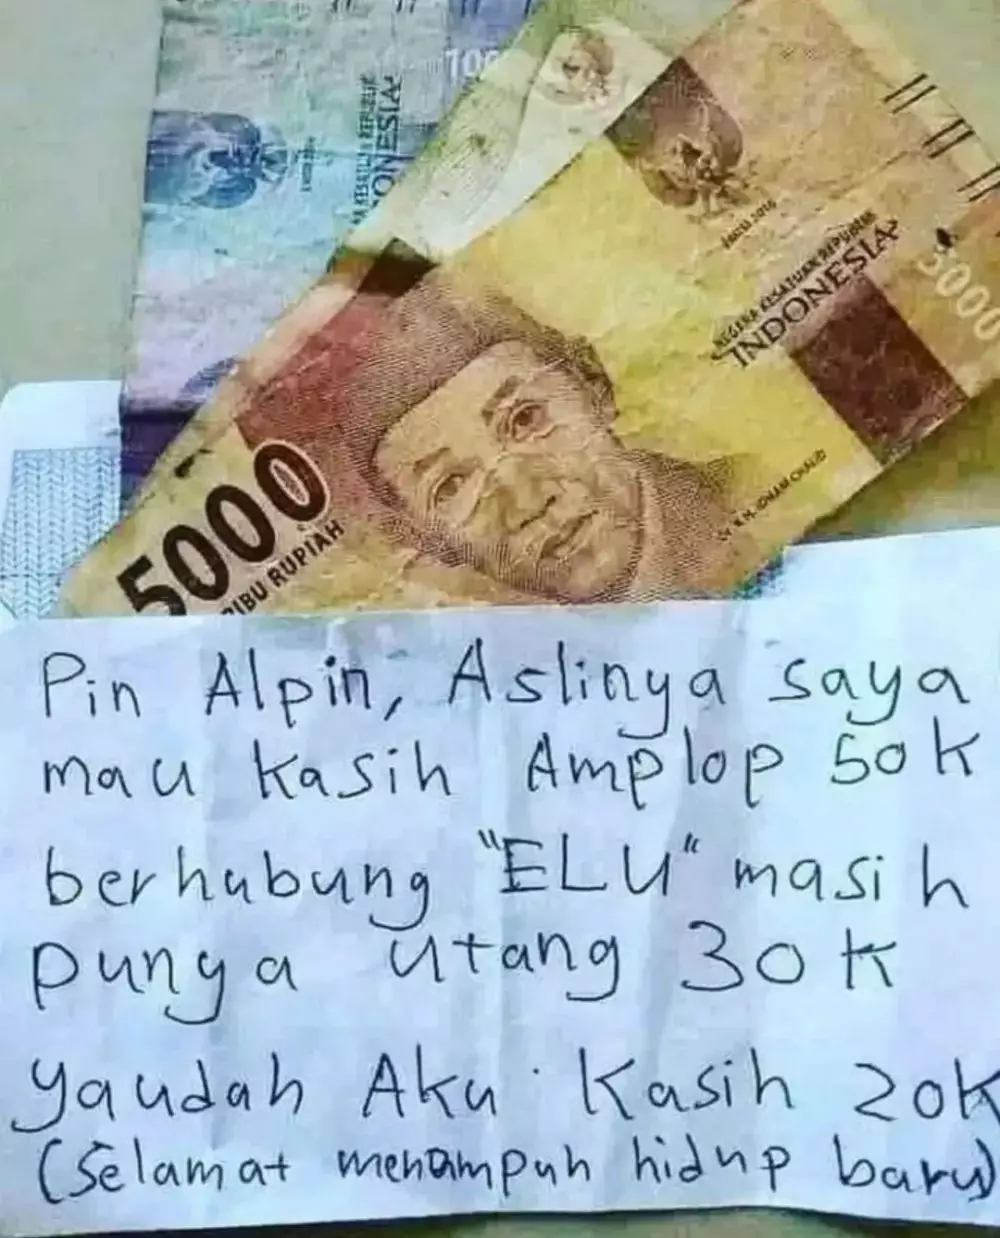 100
INDONESIA
EMISI 2016
NEGARA KESATUAN REPUBLIK
INDONESIA
5000
DR. K.H. IDHAM CHALID
5000
RIBU RUPIAH
Pin Alpin, Aslinya saya
mau kasih Amplop 50k
berhubung "ELU" masih
punya utang 30k
yaudah Aku kasih 20k
(selamat menampuh hidup baru)